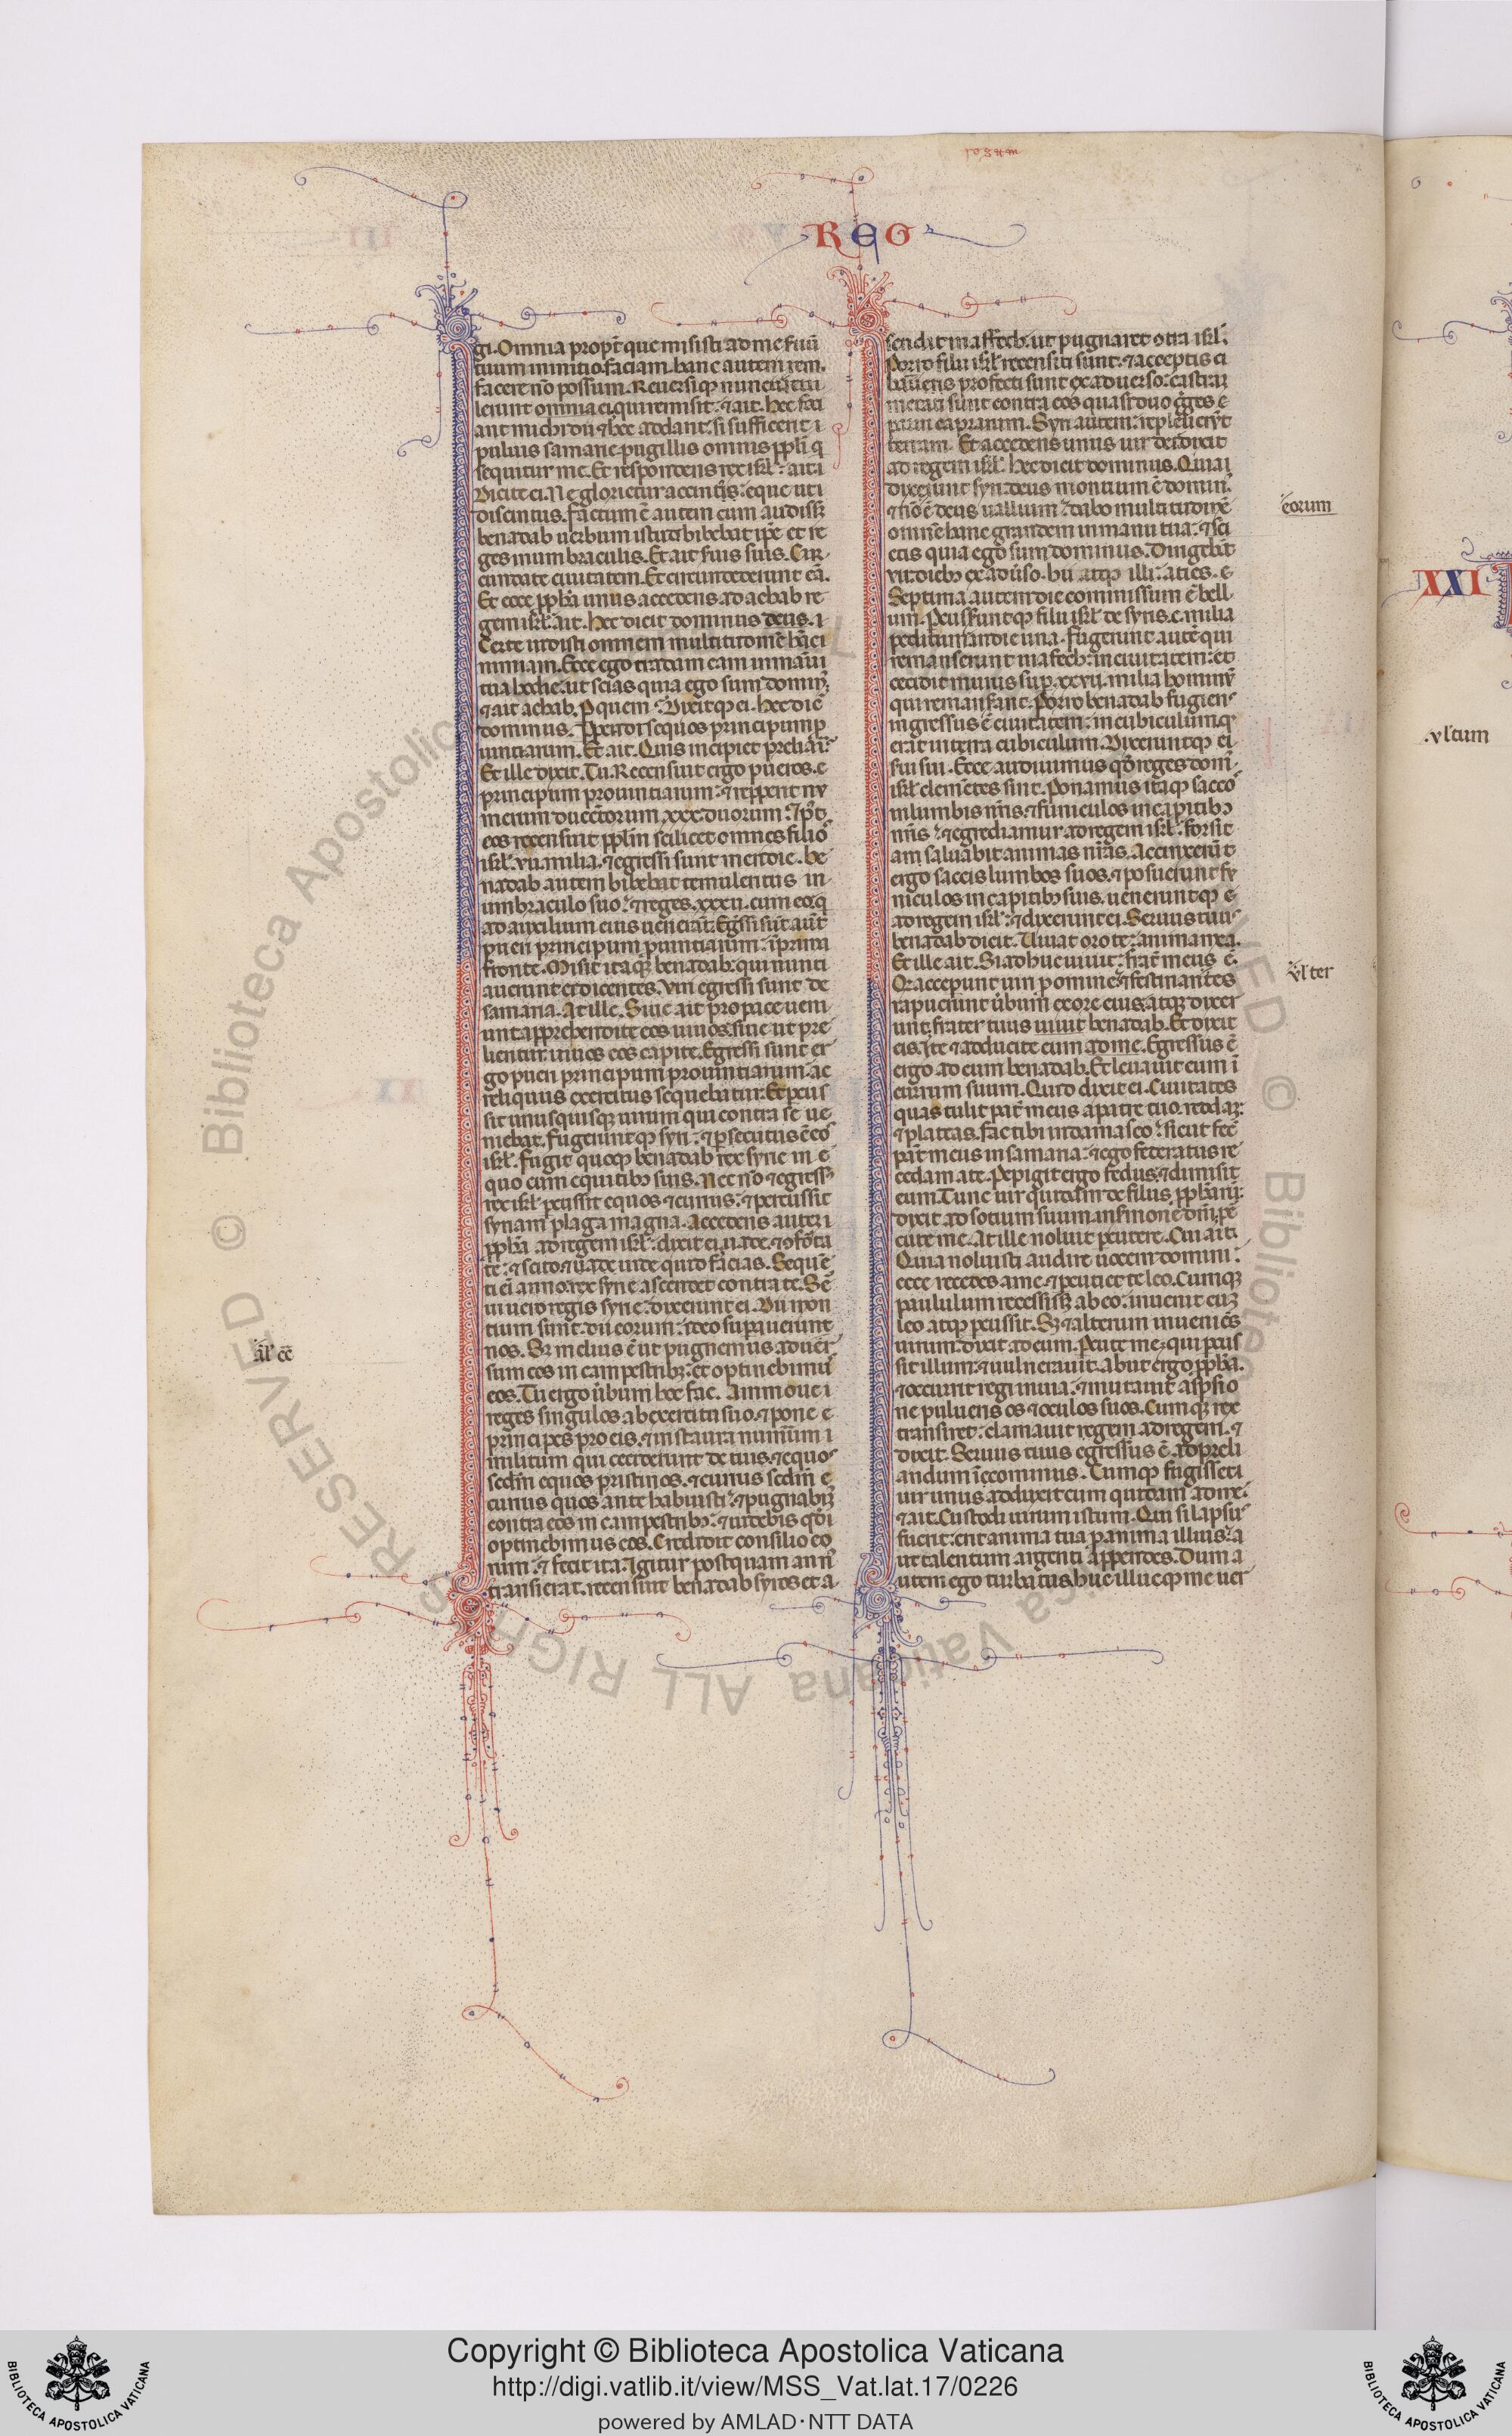 REG
gi. Omnia propt̄ que misisti ad me ꝼuū
tuum in initio. faciam. hanc autem rem.
facere nō possum. Reuersiqꝫ nuncii retu
lerunt omnia ei. qui remisit. ⁊ ait. Hec faci
ant michi dii ⁊ hec addant. si suffecerit i
puluis samarie pugillis omnis pp̄li q
sequitur me. Et respondens rex isrl̄. ait i
Dicite ei. Ne glorietur accinctꝰ. eque uti
discinctus. Factum ē autem cum audissꝫ
benadab uerbum istud bibebat ip̄e et re
ges in umbraculis. Et ait suis suis. Cir-
cumdate ciuitatem. Et circumdederunt eā.
Et ecce pp̄ha unus accedens ad achab re
gem isrl̄. ait. Hec dicit dominus deus. i
Certe uidisti omnem multitudinē hāc i
nimiam. Ecce ego tradam eam in manu
tua hodie. ut scias quia ego sum dominꝰ.
⁊ ait achab. Per quem. Dixitqꝫ ei. Hec dic̄
dominus. Per pedisequos principum p
uinciarum. Et ait. Quis incipiet preliari.
Et ille dixit. Tu. Recensuit ergo pueros. e
principum prouinciarum. ⁊ repperit nu
merum ducentorum .xxx. duorum. ⁊ pꝰt
eos recensuit pp̄lm scilicet omnes filios
isrl̄. vii. milia. ⁊ egressi sunt meridie. Be
nadab autem bibebat temulentus in-
umbraculo suo. ⁊ reges .xxxii. cum eo. q
ad auxilium eius uenerāt. Egressi sūt aūt
pueri principum puinciarum. in prima
fronte. Misit itaqꝫ benadab. qui nunti
auerunt ei dicentes. Viri egressi sunt de
samaria. At ille. Siue ait pro pace ueni
unt apprehendite eos uiuos. siue ut pre
lientur. uiuos eos capite. Egressi sunt er
go pueri principum prouinciarum. ac
reliquus exercitus sequebatur. Et pcus
sit unusquisqꝫ uirum qui contra se ue
niebat. Fugeruntqꝫ syri. ⁊ p̄secutus ē eos
isrl̄. Fugit quoqꝫ benadab rex syrie in e
quo cum equitibꝫ suis. Nec nō ⁊ egressꝰ
rex isrl̄ pcussit equos ⁊ currus. ⁊ percussit
syriam plaga magna. Accedens autem
pp̄ha ad regem isrl̄. dixit ei. uade. ⁊ ꝯforta
re. ⁊ scito. ⁊ uide uide quid facias. Sequē
ti ei anno. rex syrie ascendet contra te. Se
ui uero regis syrie. dixerunt ei. Dii mon
tium sunt. dii eorum. ideo supauerunt
nos. Sꝫ melius ē ut pugnemus aduer
sum eos in campestribꝫ. et optinebimꝰ
eos. Tu ergo ūbum hoc fac. Ammoue i
reges singulos ab exercitu suo. ⁊ pone e
principes pro eis. ⁊ instaura numerum i
militum qui ceciderunt de tuis. ⁊ equos
secdm equos pristinos. ⁊ currus secdm e
currus quos ante habuisti. ⁊ pugnabimꝰ
contra eos in campestribꝫ. ⁊ uidebis qđ i
optinebimus eos. Credidit consilio eo
rum. ⁊ fecit ita. Igitur postquam annꝰ
transierat. recensuit benadab syros et a-
scendit in affech. ut pugnaret ꝯtra isrl̄.
Porro filii isrl̄ recensiti sunt. ⁊ acceptis ci
bariis profecti sunt ex aduerso. castraqꝫ
metati sunt contra eos quasi duo greges e
parui caprarum. Syri autem. repleuerūt
terram. Et accedens unus uir dei dixit
ad regem isrl̄. Hec dicit dominus. Quia i
dixerunt syri. deus montium ē dominꝰ.
⁊ nō ē deus uallium. dabo multitudinē
omnē hanc grandem in manu tua. ⁊ sci
etis quia ego sum dominus. Dirigebāt
vii. diebꝫ ex aduso. hii atqꝫ illi. acies. e
Septima autem die commissum ē bell-
um. Pcusserūtqꝫ filii isrl̄ de syris. c. milia
peditum in die una. Fugerunt autē qui
remanserant in afech. in ciuitatem. et
cecidit murus sup̄ .xxvii. milia hominū
qui remanserant. Porro benadab fugiens
ingressus ē ciuitatem. in cubiculum. q
erat intra cubiculum. Dixeruntqꝫ ei-
serui sui. Ecce audiuimus qđ reges domꝰ
isrl̄ clemētes sint. Ponamus itaqꝫ saccos
in lumbis nr̄is. ⁊ funiculos in capitibꝫ
nr̄is. ⁊ egrediamur ad regem isrl̄. forsit
am saluabit animas nr̄as. Accinxerūt
ergo saccis lumbos suos. ⁊ posuerunt fu
niculos in capitibꝫ suis. ueneruntqꝫ e
ad regem isrl̄. ⁊ dixerunt ei. Seruus tuus
benadab dicit. Viuat oro te. anima mea.
Et ille ait. Si adhuc uiuit. frat̄ meus ē.
Qr̄ acceperunt uiri p omine. ⁊ festinantes
rapuerunt ūbum ex ore eius. atqꝫ dixer
unt. frater tuus uiuit benadab. Et dixit
eis. ite ⁊ adducite eum ad me. Egressus ē
ergo ad eum benadab. Et leuauit eum ī
currum suum. Quid dixit ei. Ciuitates
quas tulit pat̄ meus a patre tuo. reddam.
⁊ plateas. fac tibi in damasco. sicut fecit
pat̄ meus in samaria. ⁊ ego federatus re
cedam a te. Pepigit ergo fedus. ⁊ dimisit
eum. Tunc uir quidam de filiis pp̄harū.
dixit ad sotium suum in sermone dn̄i. pc
cute me. At ille noluit pcutere. Cui ait i
Quia noluisti audire uocem domini.
ecce recedes a me. ⁊ pcutiet te leo. Cumqꝫ
paululum recessisset ab eo. inuenit eum
leo atqꝫ pcussit. Sꝫ ⁊ alterum inueniens
uirum. dixit ad eum. Pcute me. qui pcus
sit illum. ⁊ uulnerauit. Abiit ergo pp̄ha.
⁊ occurrit regi in uia. ⁊ mutauit aspsio
ne pulueris os ⁊ oculos suos. Cumqꝫ rex
transiret. clamauit regem ad regem. ⁊
dixit. Seruus tuus egressus ē ad preli
andum ī cominus. Cumqꝫ fugisset i
uir unus adduxit eum quidam ad me.
⁊ ait. Custodi uirum istum. Qui si lapsus
fuerit. erit anima tua p anima illius. a
ut talentum argenti appendes. Dum a
utem ego turbatus. huc illucqꝫ me uer
al' eē
eorum
vl'ter
XXI
.vl'tum
Copyright © Biblioteca Apostolica Vaticana
http://digi.vatlib.it/view/MSS_Vat.lat.17/0226
powered by AMLAD·NTT DATA
BIBLIOTECA APOSTOLICA VATICANA
BIBLIOTECA APOSTOLICA VATICANA